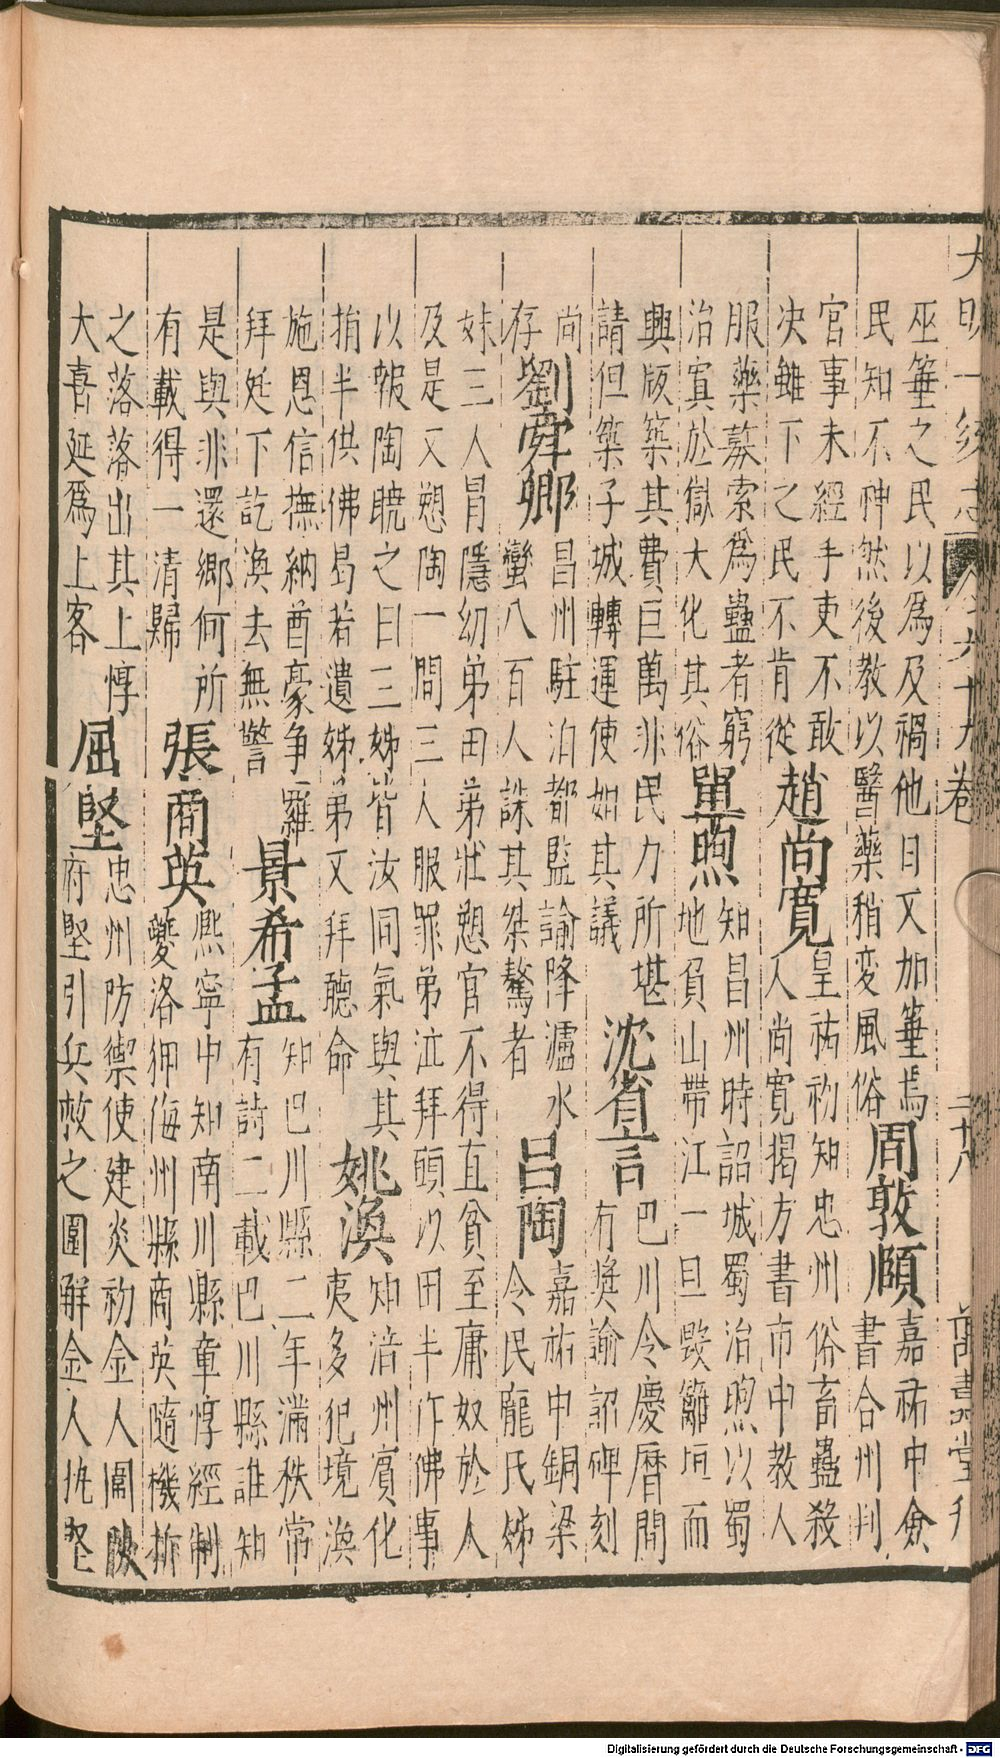 大明一統志 卷六十九卷 二十八 萬壽堂刋
巫箠之民以為及禍他日又加箠焉周敦頤嘉祐中僉
民知不神然後教以醫藥稍変風俗書合州判
官事未經手吏不敢趙尚寬皇祐初知忠州俗畜蠱殺
决雖下之民不肯從人尚寬揭方書市中教人
服藥募索為蠱者窮單煦知昌州時詔城蜀治煦以蜀
治寘於獄大化其俗地負山帶江一旦毀籬垣而
興版築其費巨萬非民力所堪沈省言巴川令慶曆間
請但築子城轉運使如其議有奬諭詔碑刻
尚
存劉舜卿昌州駐泊都監諭降瀘水
蠻八百人誅其桀驁者呂陶嘉祐中銅梁
令民龐氏姊
妹三人冒隱幼弟田弟壯愬官不得直貧至庸奴於人
及是又愬陶一問三人服罪弟泣拜頭以田半作佛事
以報陶曉之曰三姊皆汝同氣與其姚渙知涪州賓化
捐半供佛曷若遺姊弟又拜聽命夷多犯境渙
施恩信撫納酋豪争羅景希孟知巴川縣二年滿秩常
拜廷下訖渙去無警有詩二載巴川縣誰知
是與非還鄉何所張商英熈寧中知南川縣章惇經制
有載得一清歸夔洛狎侮州縣商英隨機折
之落落出其上惇屈堅忠州防禦使建炎初金人圍陝
大喜延為上客府堅引兵救之圍解金人执堅
Digitalisierung gefördert durch die Deutsche Forschungsgemeinschaft - DFG